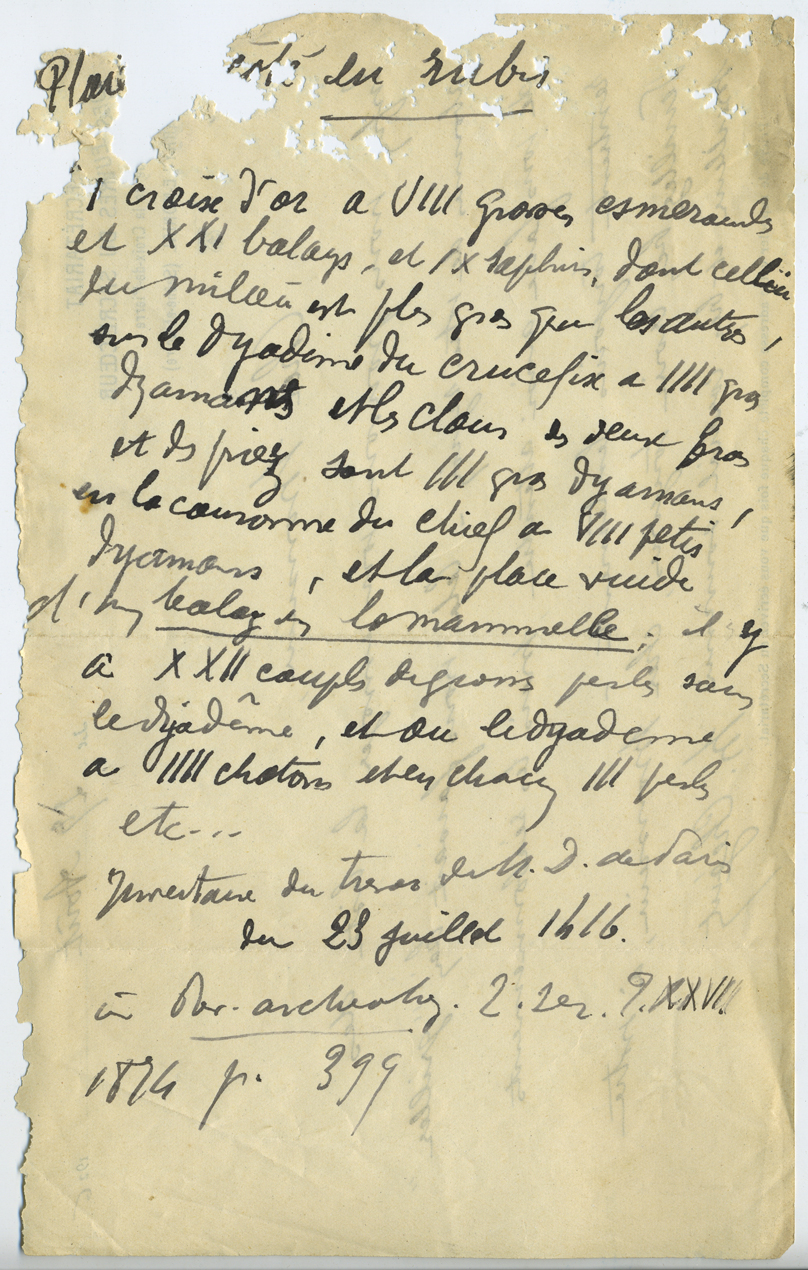 Plai côté en rubis
1 croix d'or a VIII grosses esmeraudes
et XXI balays, et IX saphirs, dont cellui
du milieu est plus gros que les autres,
sur le dyadime du crucefix a IIII gros
dyamans et les clous des deux bras
et des piez sont III gros dyamans,
en la couronne du chief a VIII petis
dyamans, et la place vuide
d'un balay en la mammelle; il y
a XXII couples de grosses perles sans
le dyadême, et ou le dyademe
a IIII chatons et en chacun III perles
etc...
Inventaire du tresor de N. D. de Paris
du 23 juillet 1416.
in Rev. archeolog. 2. ser. T. XXVII
1874 p. 399